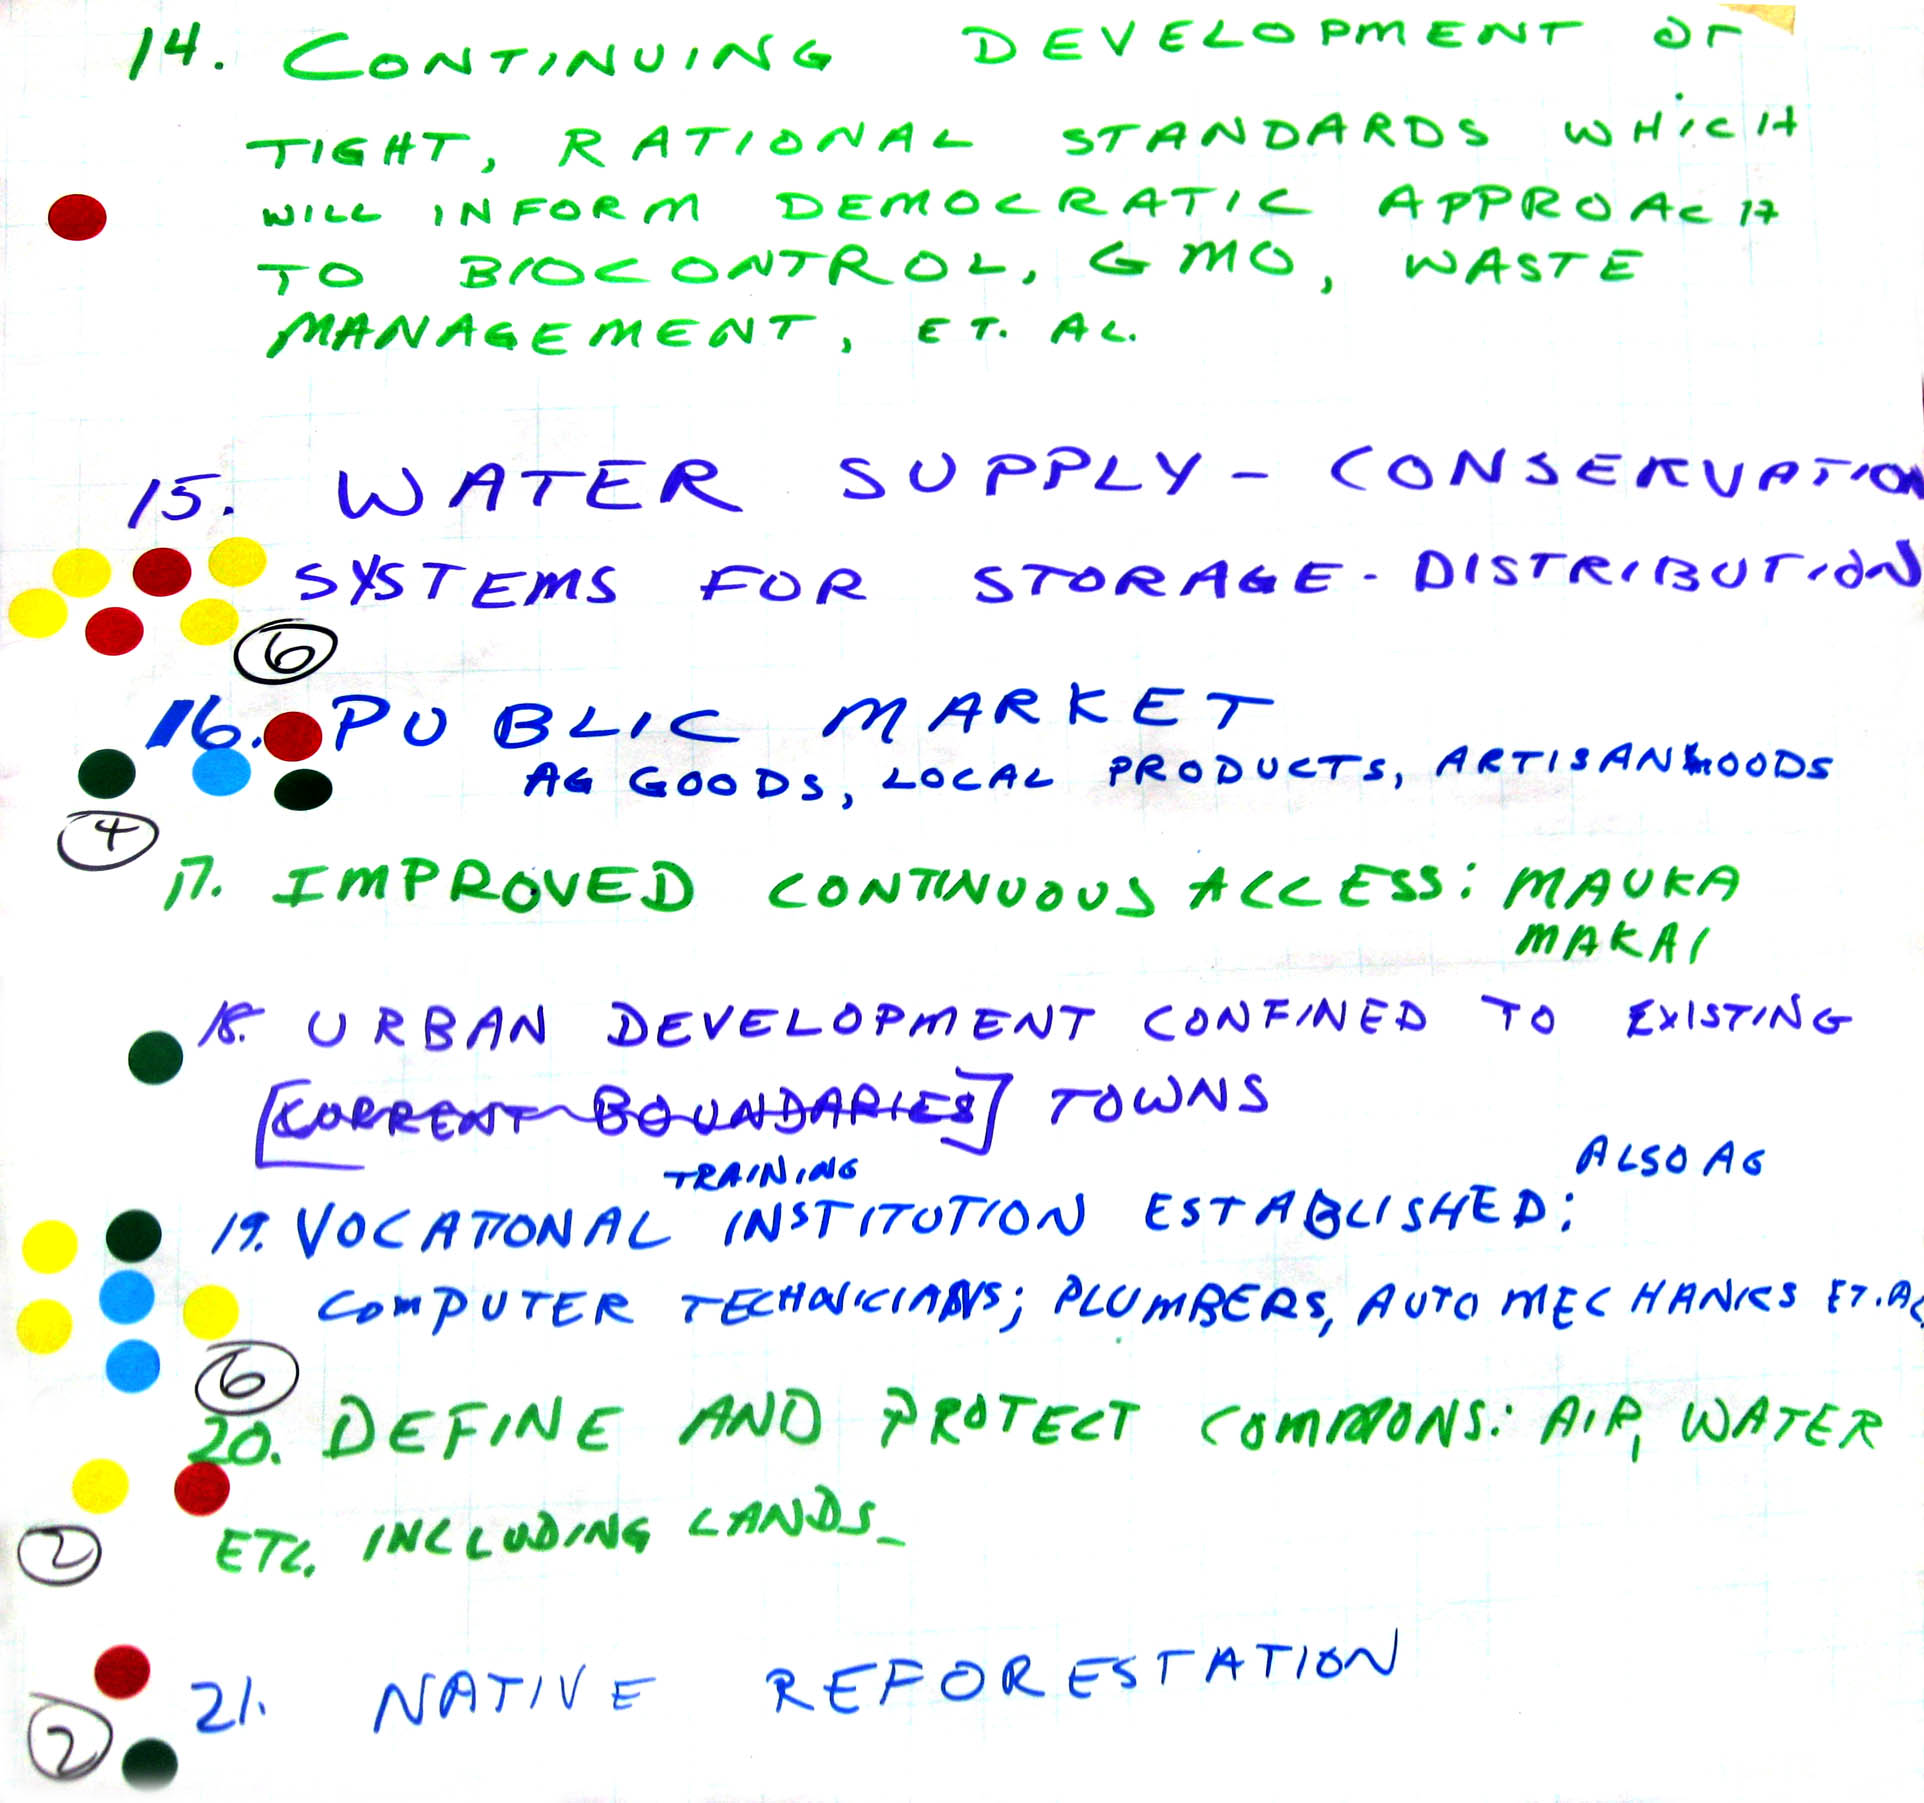 14. CONTINUING DEVELOPMENT OF
TIGHT, RATIONAL STANDARDS WHICH
WILL INFORM DEMOCRATIC APPROACH
TO BIOCONTROL, GMO, WASTE
MANAGEMENT, ET. AL.
15. WATER SUPPLY - CONSERVATION
SYSTEMS FOR STORAGE - DISTRIBUTION
6
16. PUBLIC MARKET
AG GOODS, LOCAL PRODUCTS, ARTISAN GOODS
4
17. IMPROVED CONTINUOUS ACCESS: MAUKA
MAKAI
18. URBAN DEVELOPMENT CONFINED TO EXISTING
[CURRENT BOUNDARIES] TOWNS
TRAINING ALSO AG
19. VOCATIONAL INSTITUTION ESTABLISHED:
COMPUTER TECHNICIANS; PLUMBERS, AUTO MECHANICS ET. AL
6
20. DEFINE AND PROTECT COMMONS: AIR, WATER
ETC. INCLUDING LANDS_
2
21. NATIVE REFORESTATION
2